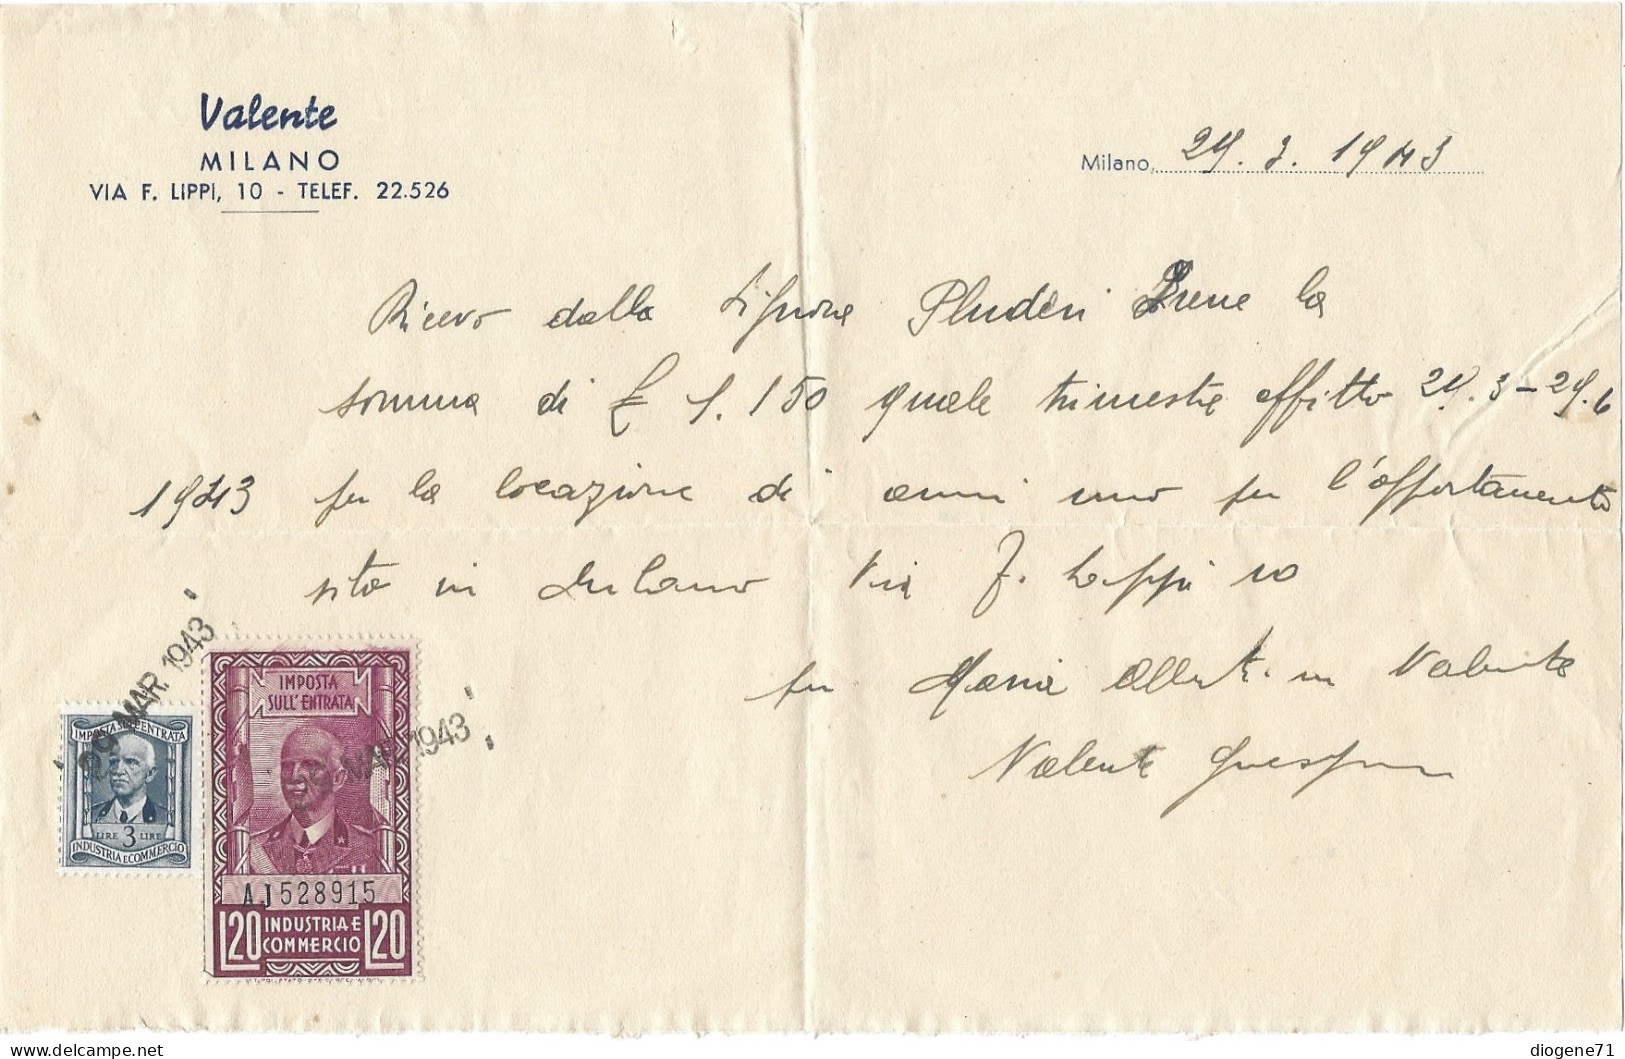 Valente
MILANO
VIA F. LIPPI, 10 - TELEF. 22.526
Milano, 29. 3. 1943
Ricevo dalla Signora Pluderi Irene la
somma di £ 1.150 quale trimestre affitto 29.3-29.6
1943 per la locazione di anni uno per l'appartamento
sito in Milano Via F. Lippi 10
per Maria in Valente
Valente
29 MAR. 1943
29 MAR. 1943
IMPOSTA SULL'ENTRATA
LIRE 3 LIRE
INDUSTRIA E COMMERCIO
IMPOSTA
SULL'ENTRATA
AJ528915
L20 INDUSTRIA E COMMERCIO L20
diogene71